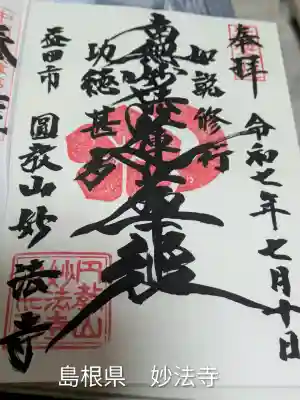 奉拝
令和七年七月十日
如説修行
南無妙法蓮華経
功徳甚多
益田市
圓教山妙法寺
円教山
妙法寺
島根県　妙法寺